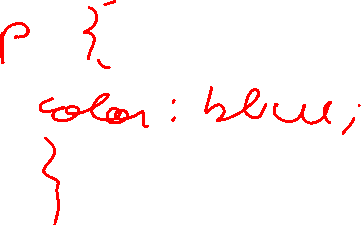 p {
color: blue;
}